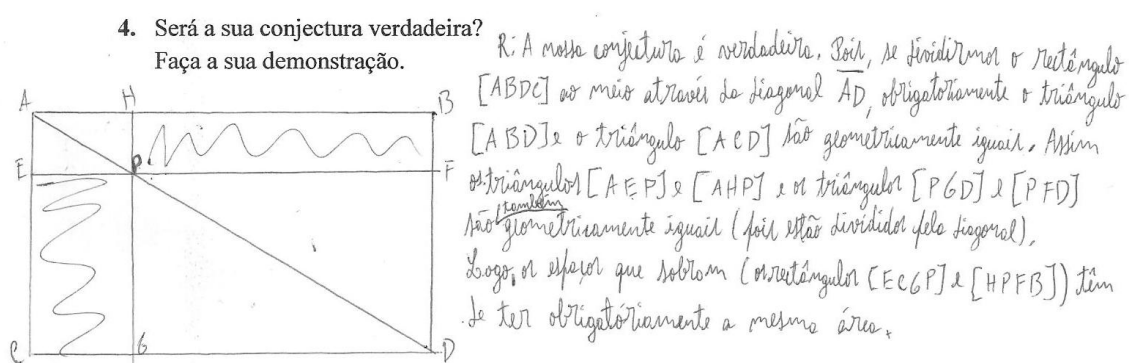 4. Será a sua conjectura verdadeira?
Faça a sua demonstração.
R: A nossa conjectura é verdadeira. Pois, se dividirmos o rectângulo
[ABDC] ao meio através da diagonal AD, obrigatoriamente o triângulo
[ABD] e o triângulo [ACD] são geometricamente iguais. Assim
os triângulos [AEP] e [AHP] e os triângulos [PGD] e [PFD]
são também geometricamente iguais (pois estão divididos pela diagonal).
Logo, os espaços que sobram (os rectângulos [ECGP] e [HPFB]) têm
de ter obrigatóriamente a mesma área.
A H B
E P F
C G D